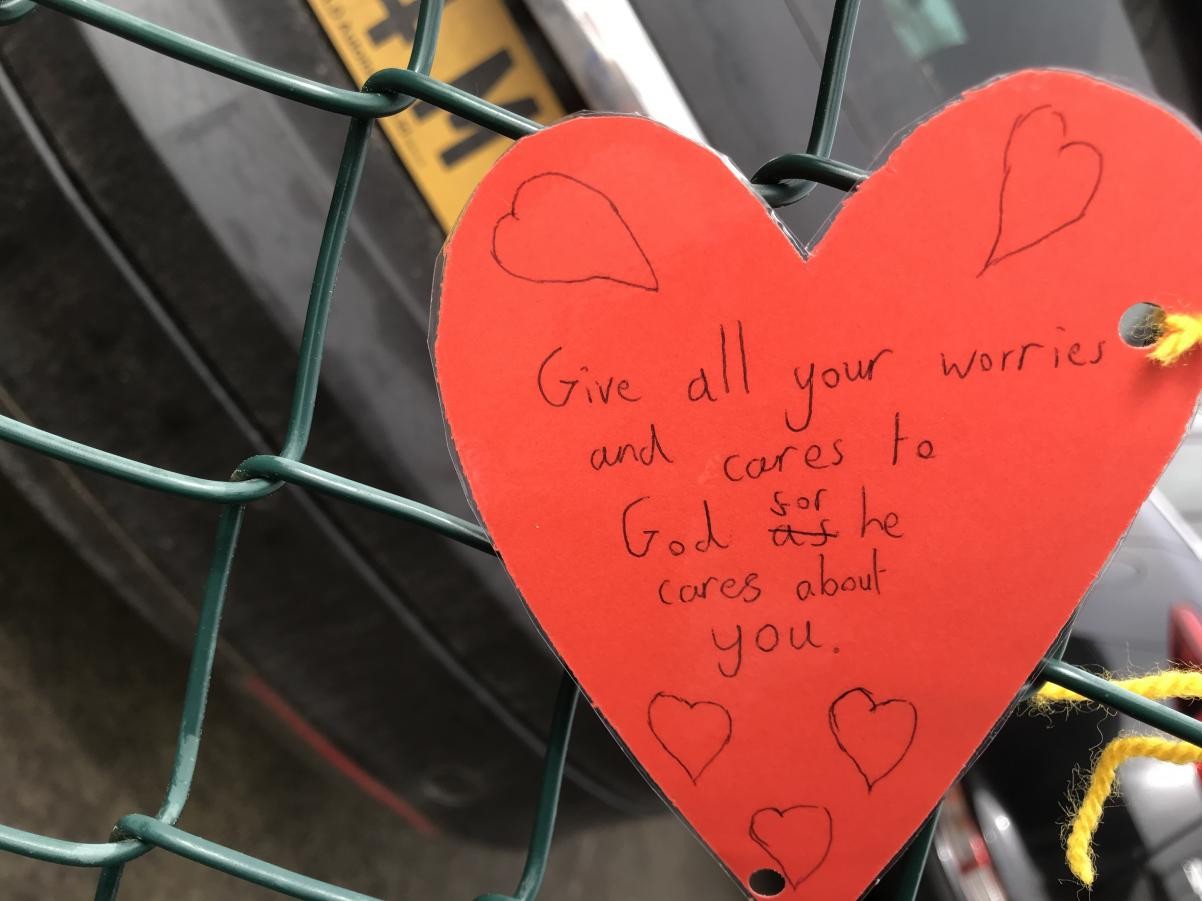 Give all your worries
and cares to
God for he
cares about
you.